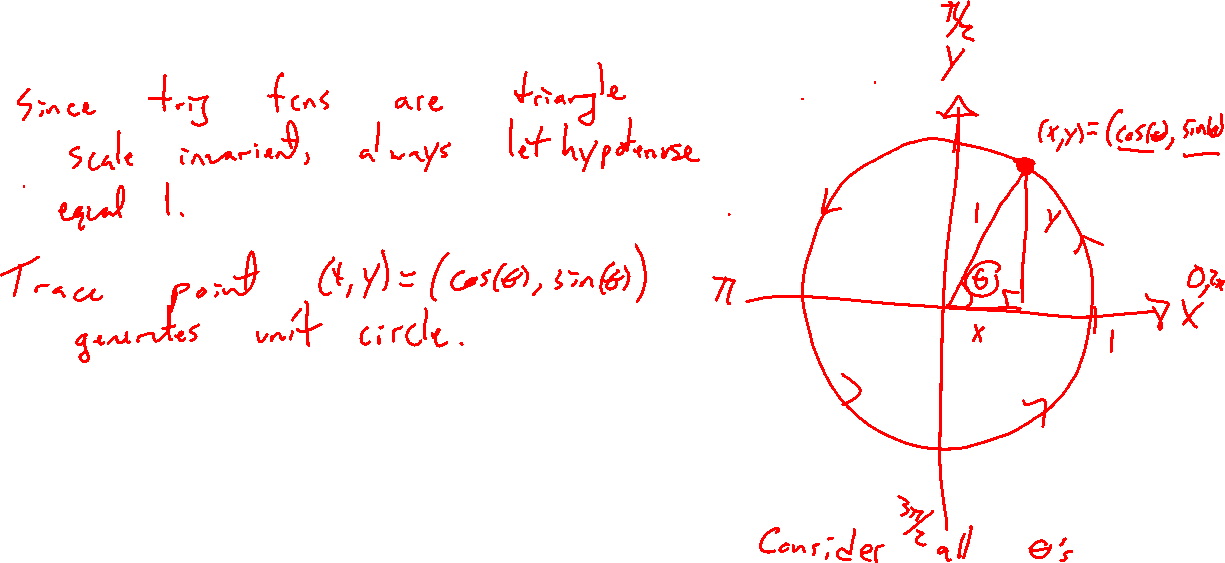 Since trig fcns are triangle
scale invariant, always let hypotenuse
equal 1.
Trace point (x,y)=(cos(θ), sin(θ))
generates unit circle.
π/2
y
(x,y)=(cos(θ), sin(θ)
1
y
θ
π
0,2π
x
x
1
3π/2
Consider all θ's